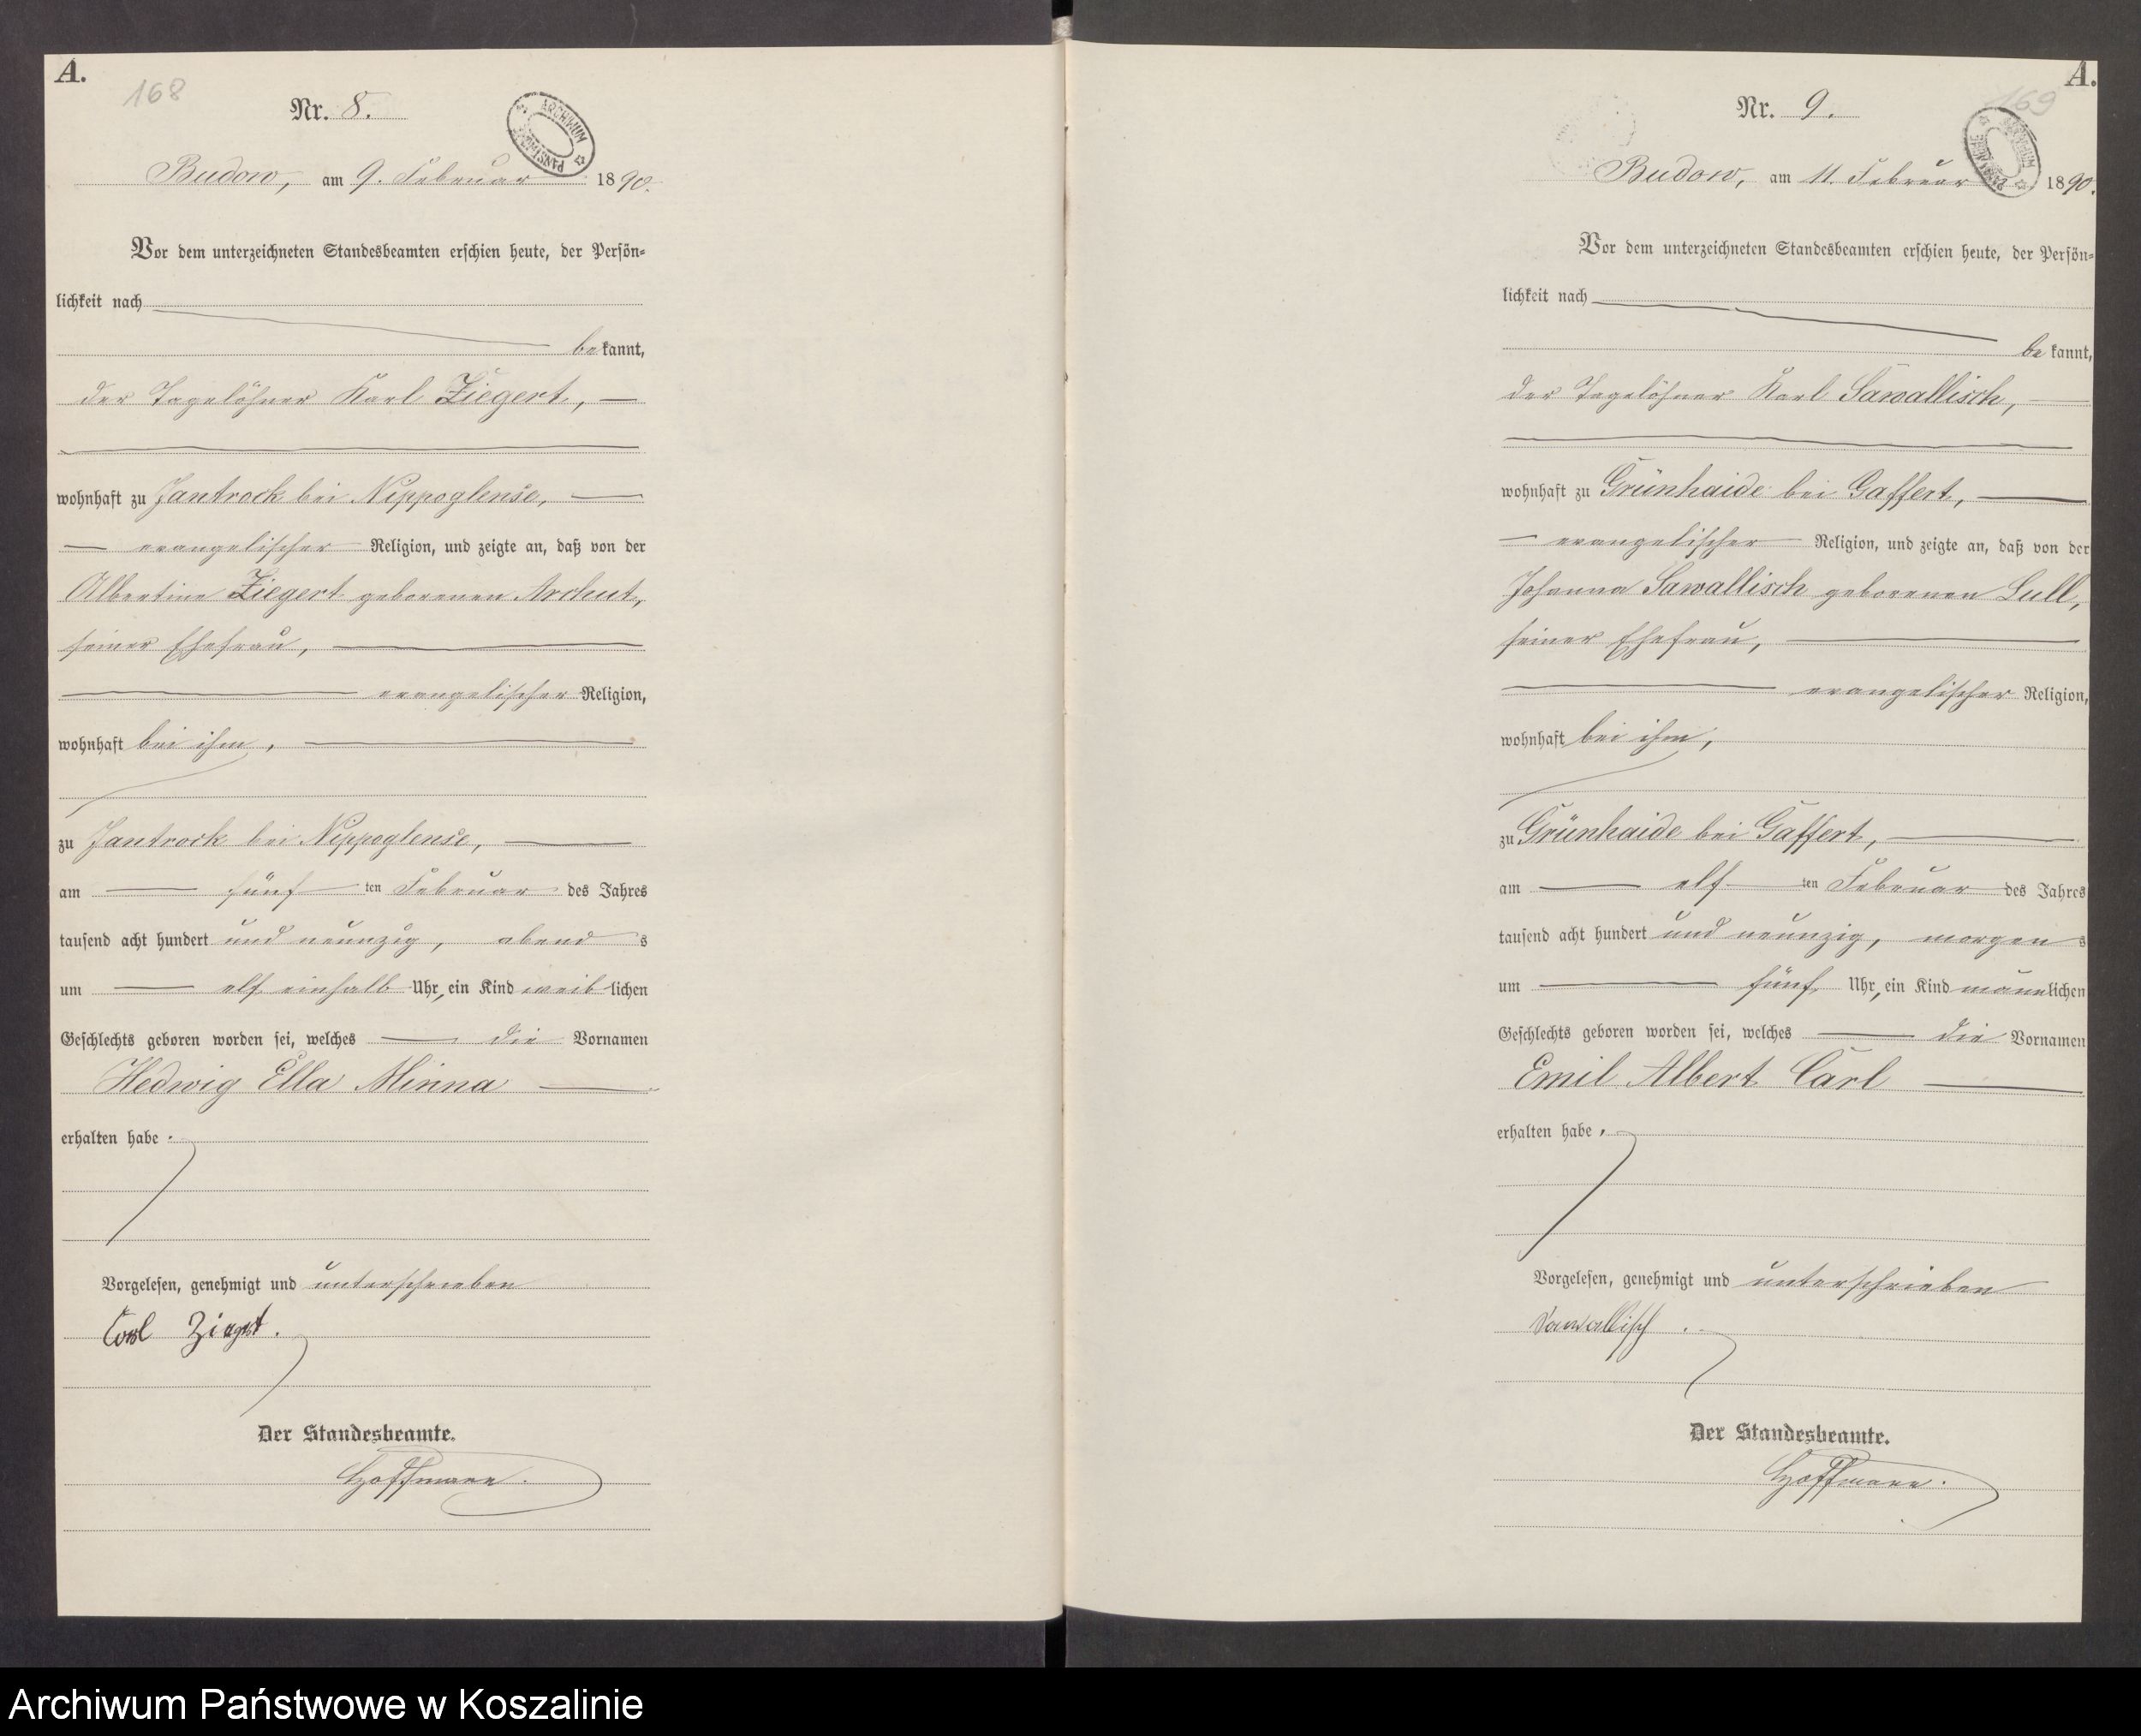 A.
168
Nr. 8.
ARCHIWUM PAŃSTWOWE
Budow, am 9. Februar 1890.
Vor dem unterzeichneten Standesbeamten erschien heute, der Persön-
lichkeit nach
bekannt,
der Tagelöhner Karl Ziegert,
wohnhaft zu Jantrock bei Nippoglense,
evangelischer Religion, und zeigte an, daß von der
Albertine Ziegert geborenen Archut,
seiner Ehefrau,
evangelischer Religion,
wohnhaft bei ihm,
zu Jantrock bei Nippoglense,
am fünf ten Februar des Jahres
tausend acht hundert und neunzig, abend s
um elf einhalb Uhr, ein Kind weiblichen
Geschlechts geboren worden sei, welches die Vornamen
Hedwig Ella Minna
erhalten habe.
Vorgelesen, genehmigt und unterschrieben
Carl Ziegert.
Der Standesbeamte.
Hoffmann.
A.
169
Nr. 9.
Budow, am 11. Februar 1890.
Vor dem unterzeichneten Standesbeamten erschien heute, der Persön-
lichkeit nach
bekannt,
der Tagelöhner Karl Sawallisch,
wohnhaft zu Grünhaide bei Gaffert,
evangelischer Religion, und zeigte an, daß von der
Johanna Sawallisch geborenen Lull,
seiner Ehefrau,
evangelischer Religion,
wohnhaft bei ihm,
zu Grünhaide bei Gaffert,
am elf ten Februar des Jahres
tausend acht hundert und neunzig, morgen s
um fünf Uhr, ein Kind männlichen
Geschlechts geboren worden sei, welches die Vornamen
Emil Albert Carl
erhalten habe.
Vorgelesen, genehmigt und unterschrieben
Sawallisch.
Der Standesbeamte.
Hoffmann.
Archiwum Państwowe w Koszalinie